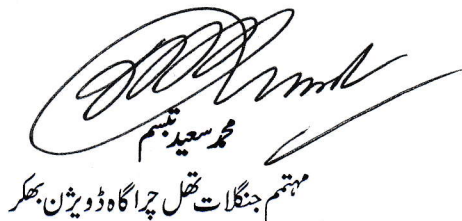 محمد سعید تبسم
مہتمم جنگلات تھل چراگاہ ڈویژن بھکر